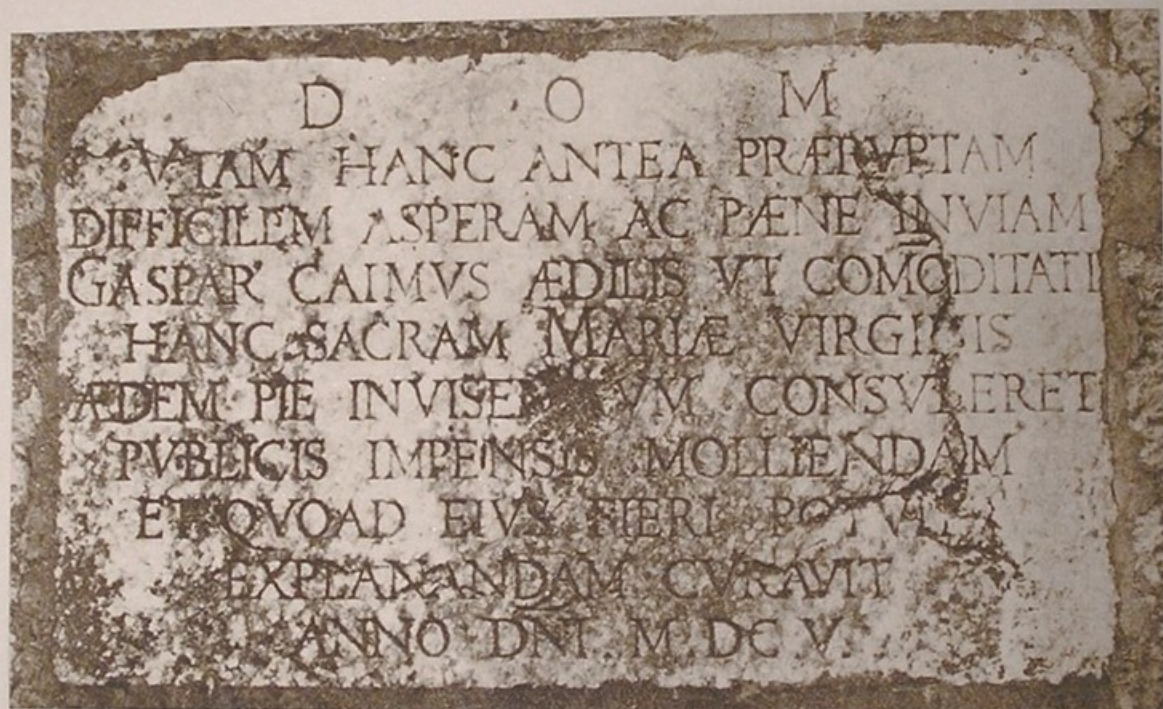 D O M
VIAM HANC ANTEA PRÆRVPTAM
DIFFICILEM ASPERAM AC PÆNE INVIAM
GASPAR CAIMVS ÆDILIS VT COMODITATI
HANC SACRAM MARIÆ VIRGINIS
ÆDEM PIE CONSVLERET
PVBLICIS IMPENSIS MOLLIENDAM
ET QVOAD EIVS FIERI
EXPLANANDAM CVRAVIT
ANNO DNI M DC V